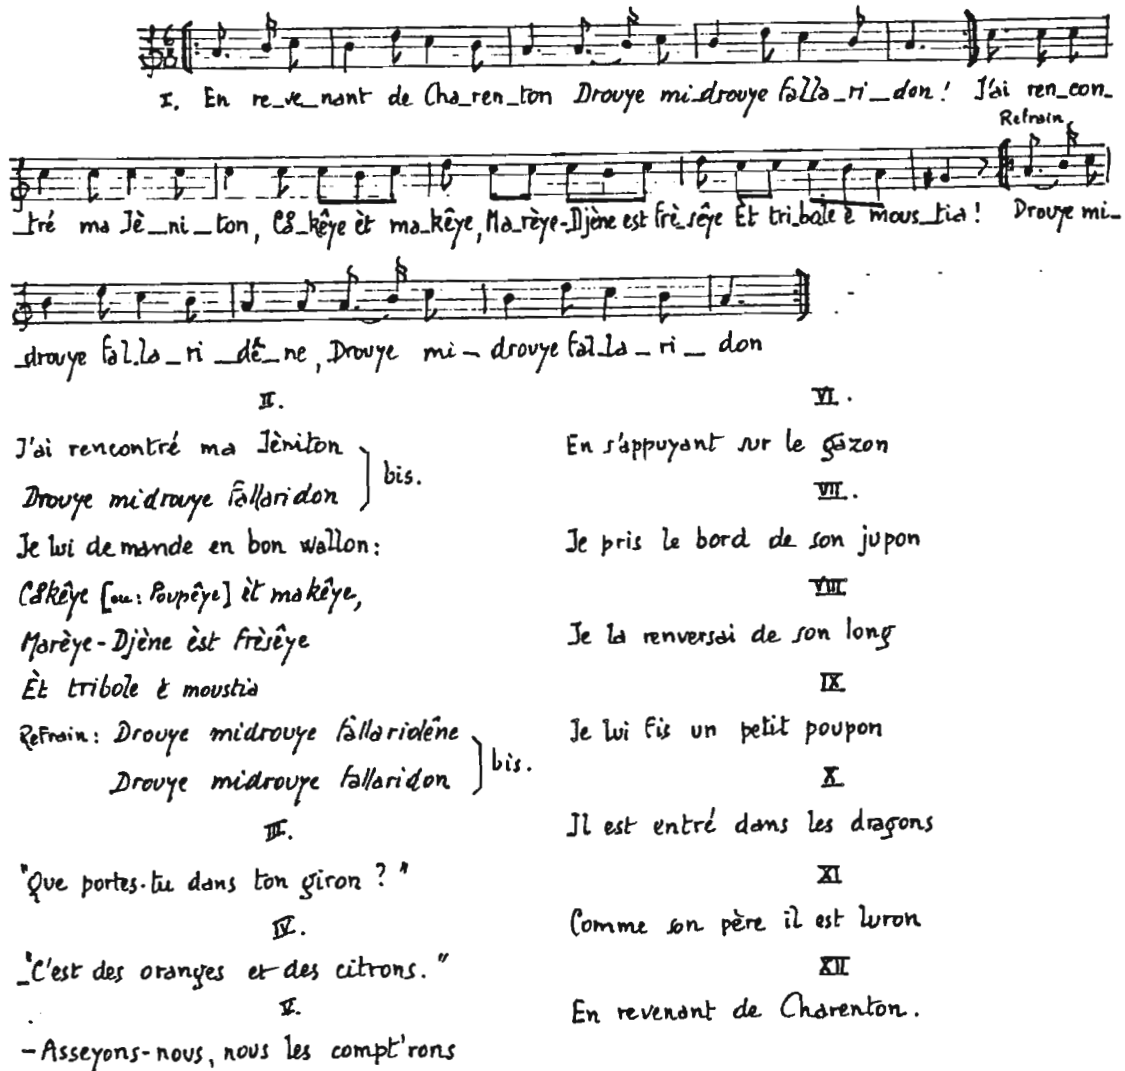 I. En re_ve_nant de Cha_ren_ton Drouye mi_drouye falla_ri_don! J'ai ren_con_
Refrain
_tré ma Jè_ni_ton, Câ_kêye èt ma_kêye, Ma_rèye-Djène est frè_sêye Èt tri_bole è mous_tia! Drouye mi_
_drouye fal_la_ri_dê_ne, Drouye mi_drouye fal_la_ri_don
II.
J'ai rencontré ma Jèniton
Drouye midrouye fallaridon
bis.
Je lui demande en bon wallon:
Câkêye [ou: Poupêye] èt makêye,
Marèye-Djène èst frèsêye
Èt tribole è moustia
Refrain: Drouye midrouye fallaridêne
Drouye midrouye fallaridon
bis.
III.
"Que portes-tu dans ton giron ?"
IV.
_"C'est des oranges et des citrons."
V.
-Asseyons-nous, nous les compt'rons
VI.
En s'appuyant sur le gazon
VII.
Je pris le bord de son jupon
VIII
Je la renversai de son long
IX
Je lui fis un petit poupon
X
Il est entré dans les dragons
XI
Comme son père il est luron
XII
En revenant de Charenton.